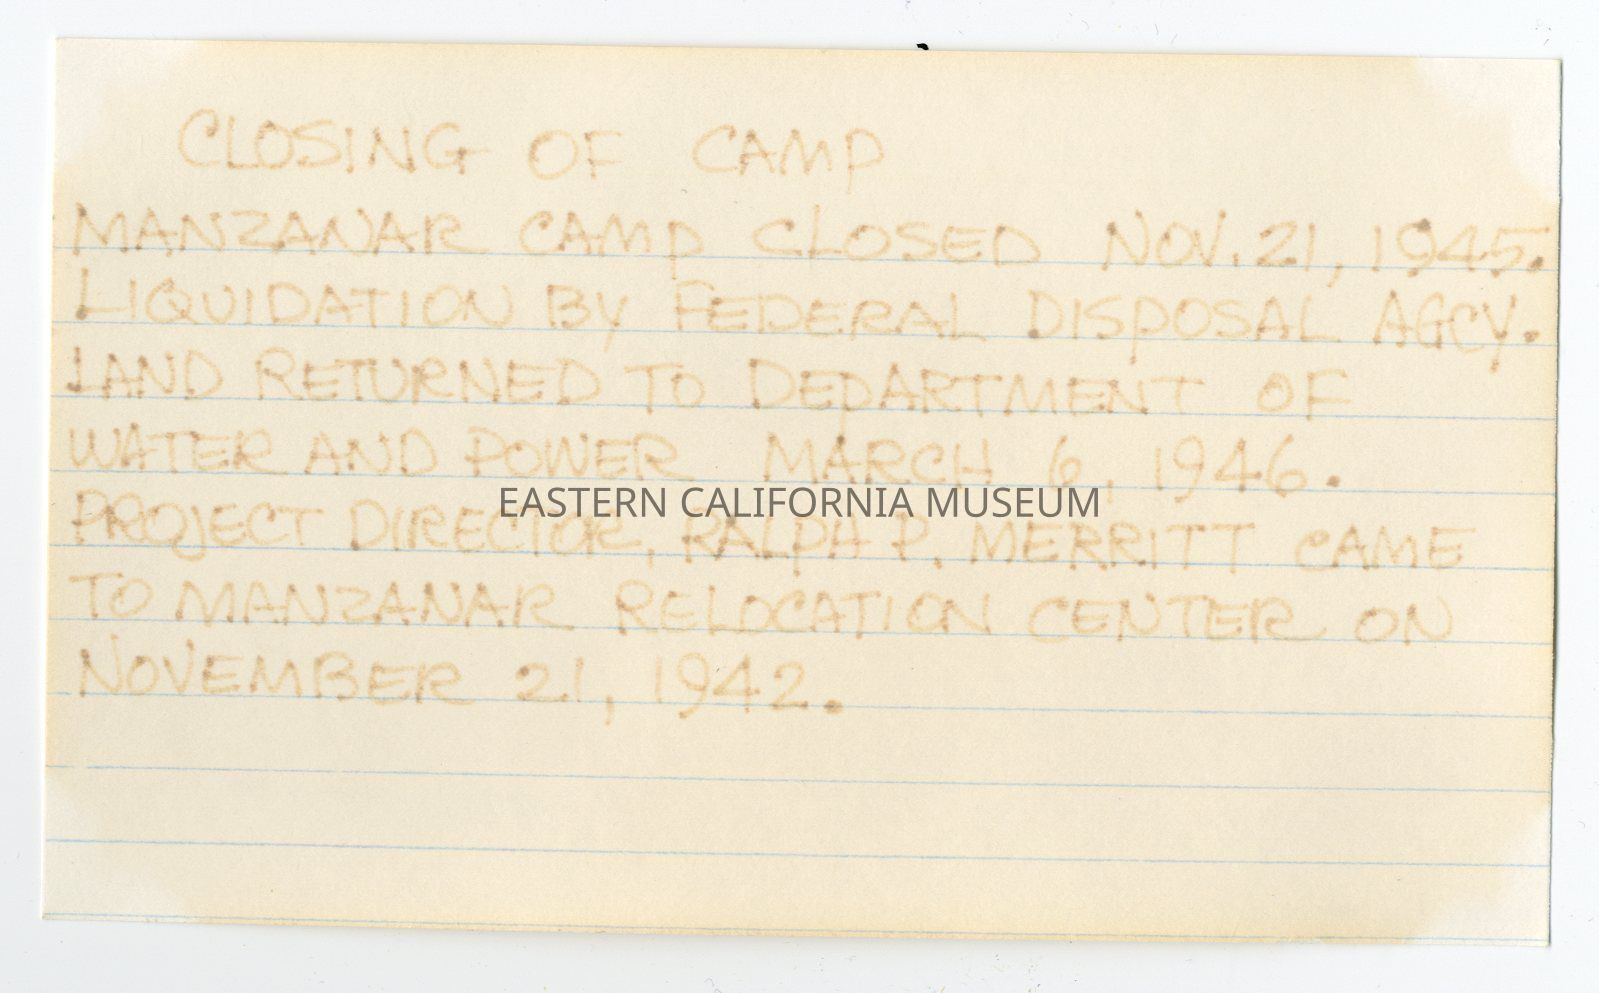 CLOSING OF CAMP
MANZANAR CAMP CLOSED NOV. 21, 1945.
LIQUIDATION BY FEDERAL DISPOSAL AGCY.
LAND RETURNED TO DEPARTMENT OF
WATER AND POWER MARCH 6, 1946.
EASTERN CALIFORNIA MUSEUM
PROJECT DIRECTOR, RALPH P. MERRITT CAME
TO MANZANAR RELOCATION CENTER ON
NOVEMBER 21, 1942.